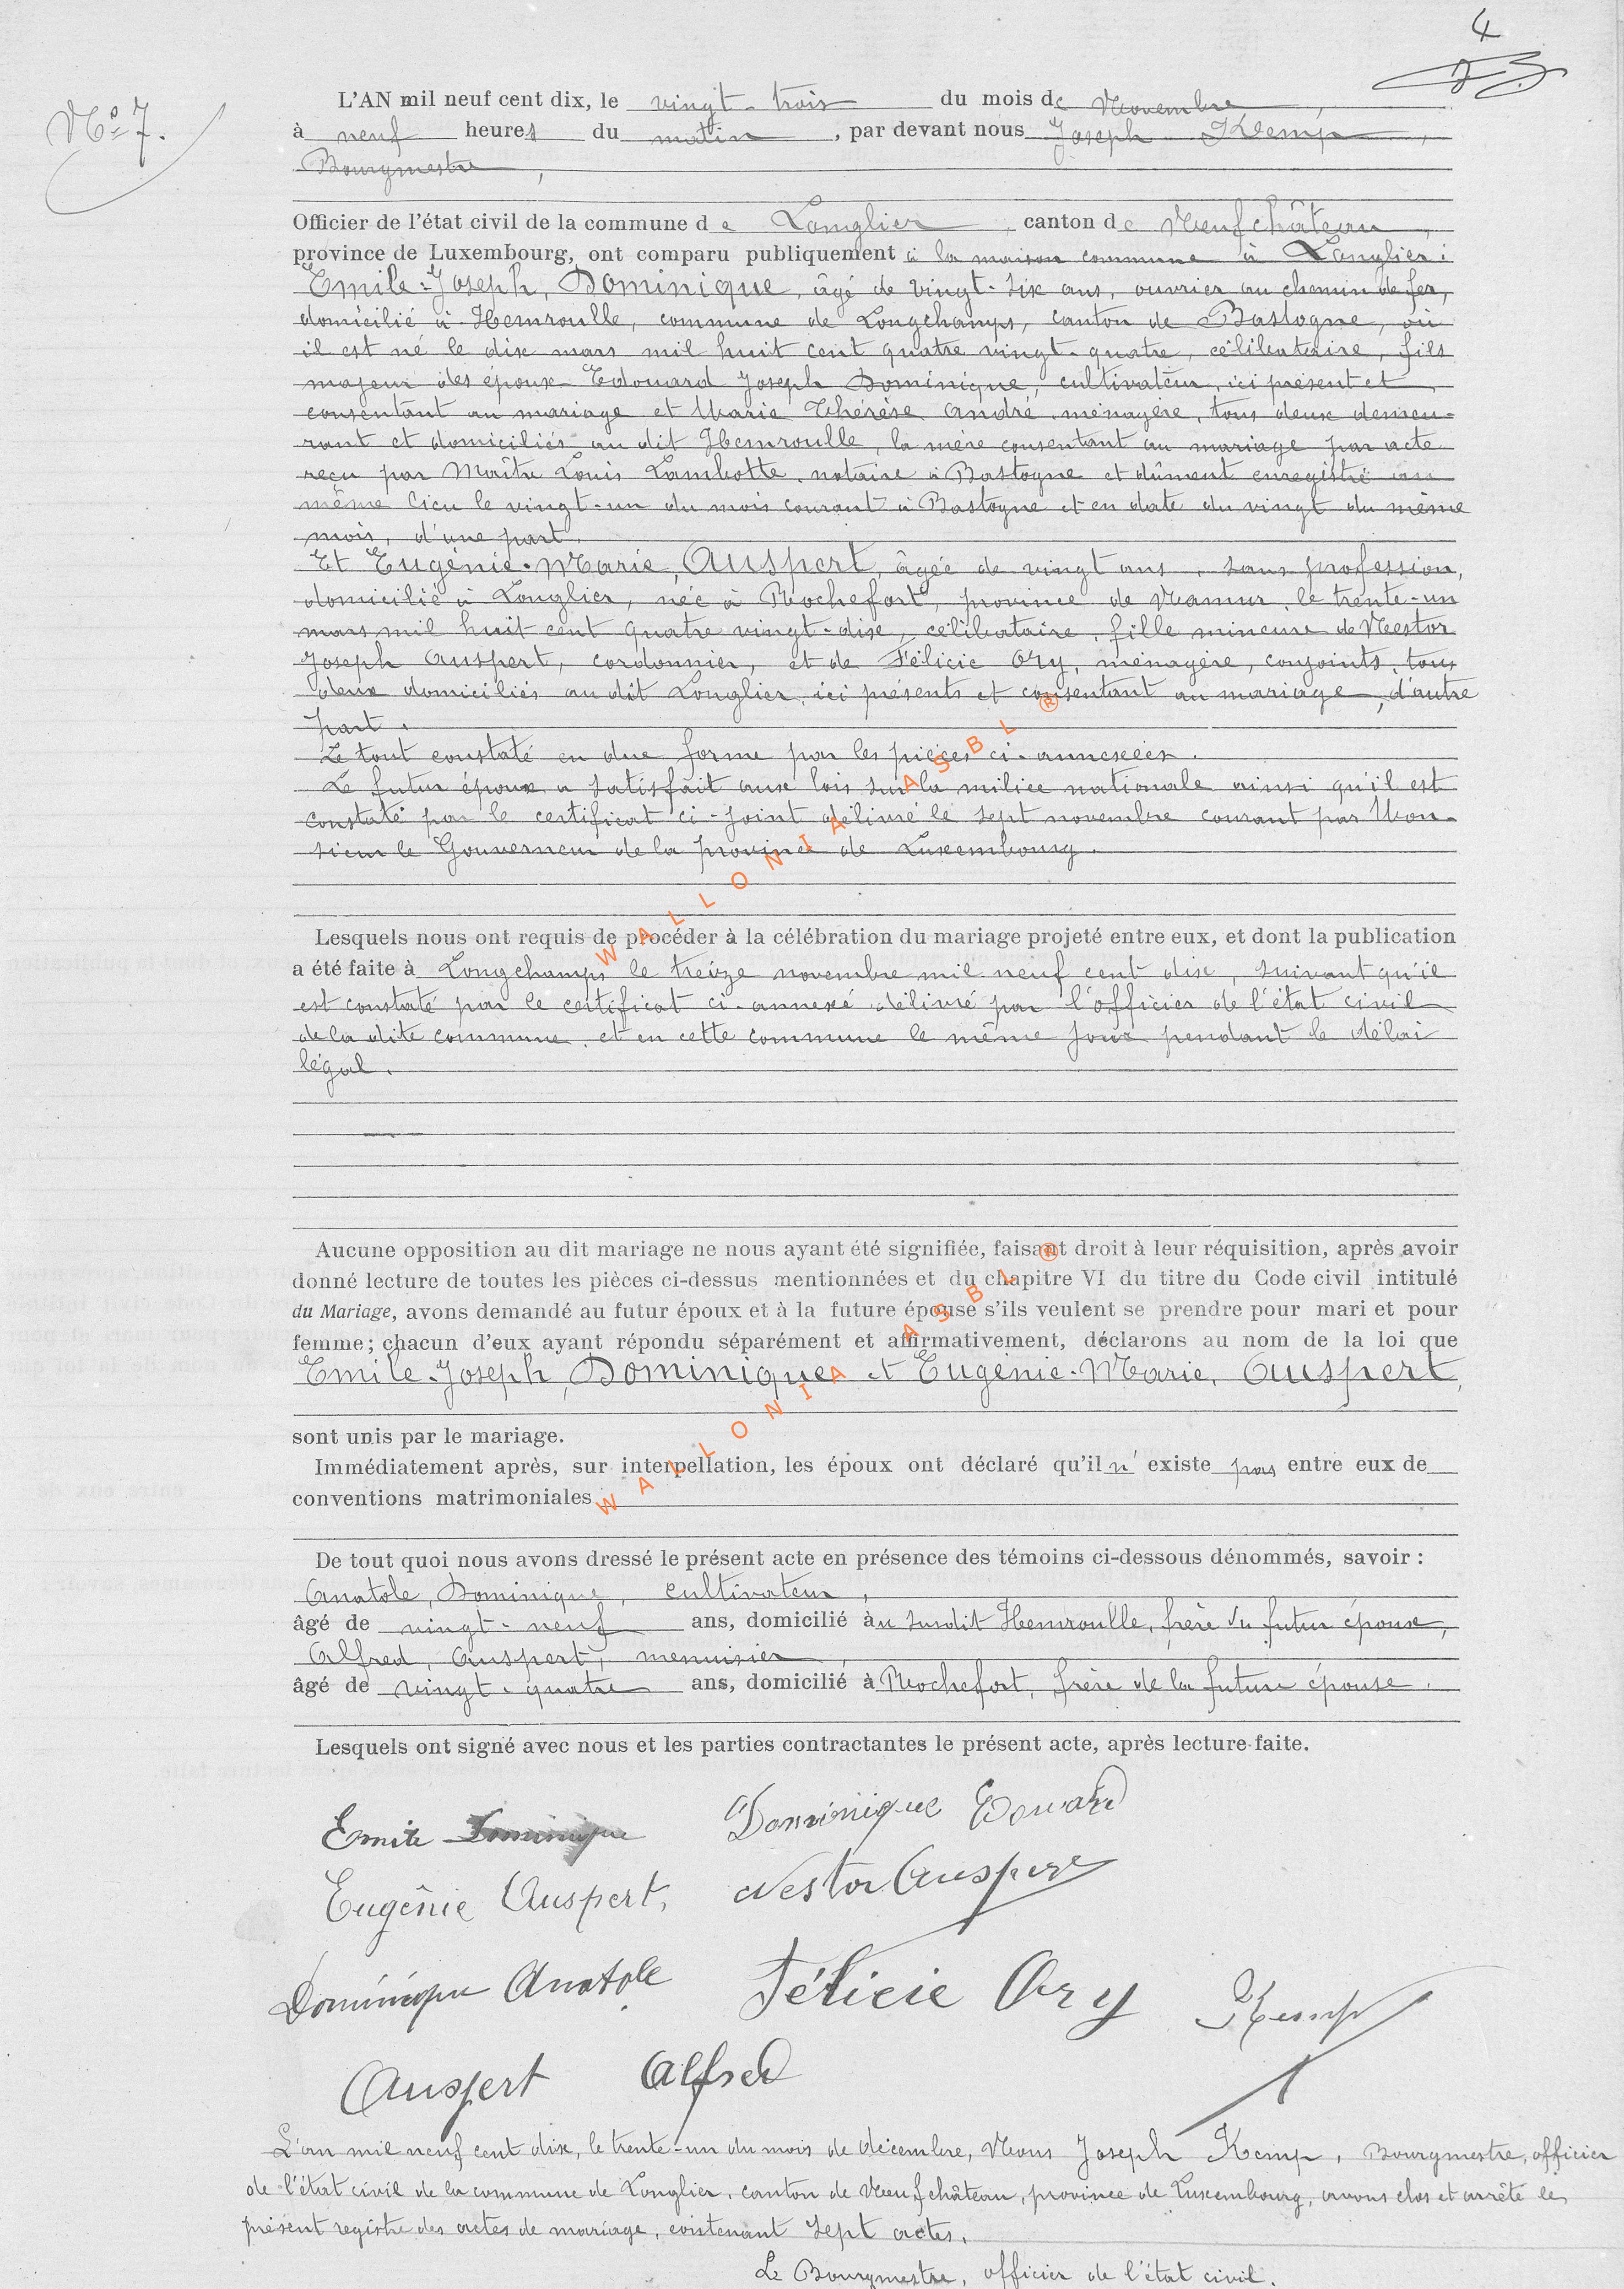 4
N° 7.
L'AN mil neuf cent dix, le vingt-trois du mois de Novembre,
à neuf heures du matin, par devant nous Joseph Kemp,
Bourgmestre,
Officier de l'état civil de la commune de Longlier, canton de Neufchâteau,
province de Luxembourg, ont comparu publiquement à la maison commune à Longlier:
Emile-Joseph, Dominique, âgé de vingt-six ans, ouvrier au chemin de fer,
domicilié à Hemroulle, commune de Longchamps, canton de Bastogne, où
il est né le dix mars mil huit cent quatre vingt-quatre, célibataire, fils
majeur des époux Edouard Joseph Dominique, cultivateur, ici présent et
consentant au mariage et Marie Thérèse André, ménagère, tous deux demeu-
rant et domiciliés au dit Hemroulle, la mère consentant au mariage par acte
reçu par Maître Louis Lambotte, notaire à Bastogne et dûment enregistré au
même lieu le vingt-un du mois courant à Bastogne et en date du vingt du même
mois, d'une part.
Et Eugénie-Marie, Auspert, âgée de vingt ans, sans profession,
domicilié à Longlier, née à Rochefort, province de Namur, le trente-un
mars mil huit cent quatre vingt-dix, célibataire, fille mineure de Nestor
Joseph Auspert, cordonnier, et de Félicie Ory, ménagère, conjoints, tous
deux domiciliés au dit Longlier, ici présents et consentant au mariage, d'autre
part.
Le tout constaté en due forme par les pièces ci-annexées.
Le futur époux a satisfait aux lois sur la milice nationale ainsi qu'il est
constaté par le certificat ci-joint délivré le sept novembre courant par Mon-
sieur le Gouverneur de la province de Luxembourg.
Lesquels nous ont requis de procéder à la célébration du mariage projeté entre eux, et dont la publication
a été faite à Longchamps le treize novembre mil neuf cent dix, suivant qu'il
est constaté par le certificat ci-annexé délivré par l'officier de l'état civil
de la dite commune, et en cette commune le même jour pendant le délai
légal.
Aucune opposition au dit mariage ne nous ayant été signifiée, faisant droit à leur réquisition, après avoir
donné lecture de toutes les pièces ci-dessus mentionnées et du chapitre VI du titre du Code civil intitulé
du Mariage, avons demandé au futur époux et à la future épouse s'ils veulent se prendre pour mari et pour
femme; chacun d'eux ayant répondu séparément et affirmativement, déclarons au nom de la loi que
Emile-Joseph, Dominique et Eugénie-Marie, Auspert,
sont unis par le mariage.
Immédiatement après, sur interpellation, les époux ont déclaré qu'il n'existe pas entre eux de
conventions matrimoniales.
De tout quoi nous avons dressé le présent acte en présence des témoins ci-dessous dénommés, savoir :
Anatole, Dominique, cultivateur,
âgé de vingt-neuf ans, domicilié àu susdit Hemroulle, frère du futur époux,
Alfred, Auspert, menuisier,
âgé de vingt-quatre ans, domicilié à Rochefort, frère de la future épouse.
Lesquels ont signé avec nous et les parties contractantes le présent acte, après lecture faite.
Emile Dominique Dominique Edouard
Eugênie Auspert, Nestor Auspert
Dominique Anatole Félicie Ory Kemp
Auspert Alfred
L'an mil neuf cent dix, le trente-un du mois de décembre, Nous Joseph Kemp, Bourgmestre, officier
de l'état civil de la commune de Longlier, canton de Neufchâteau, province de Luxembourg, avons clos et arrêté le
présent registre des actes de mariage, contenant sept actes.
Le Bourgmestre, officier de l'état civil.
WALLONIA ASBL ®
WALLONIA ASBL ®